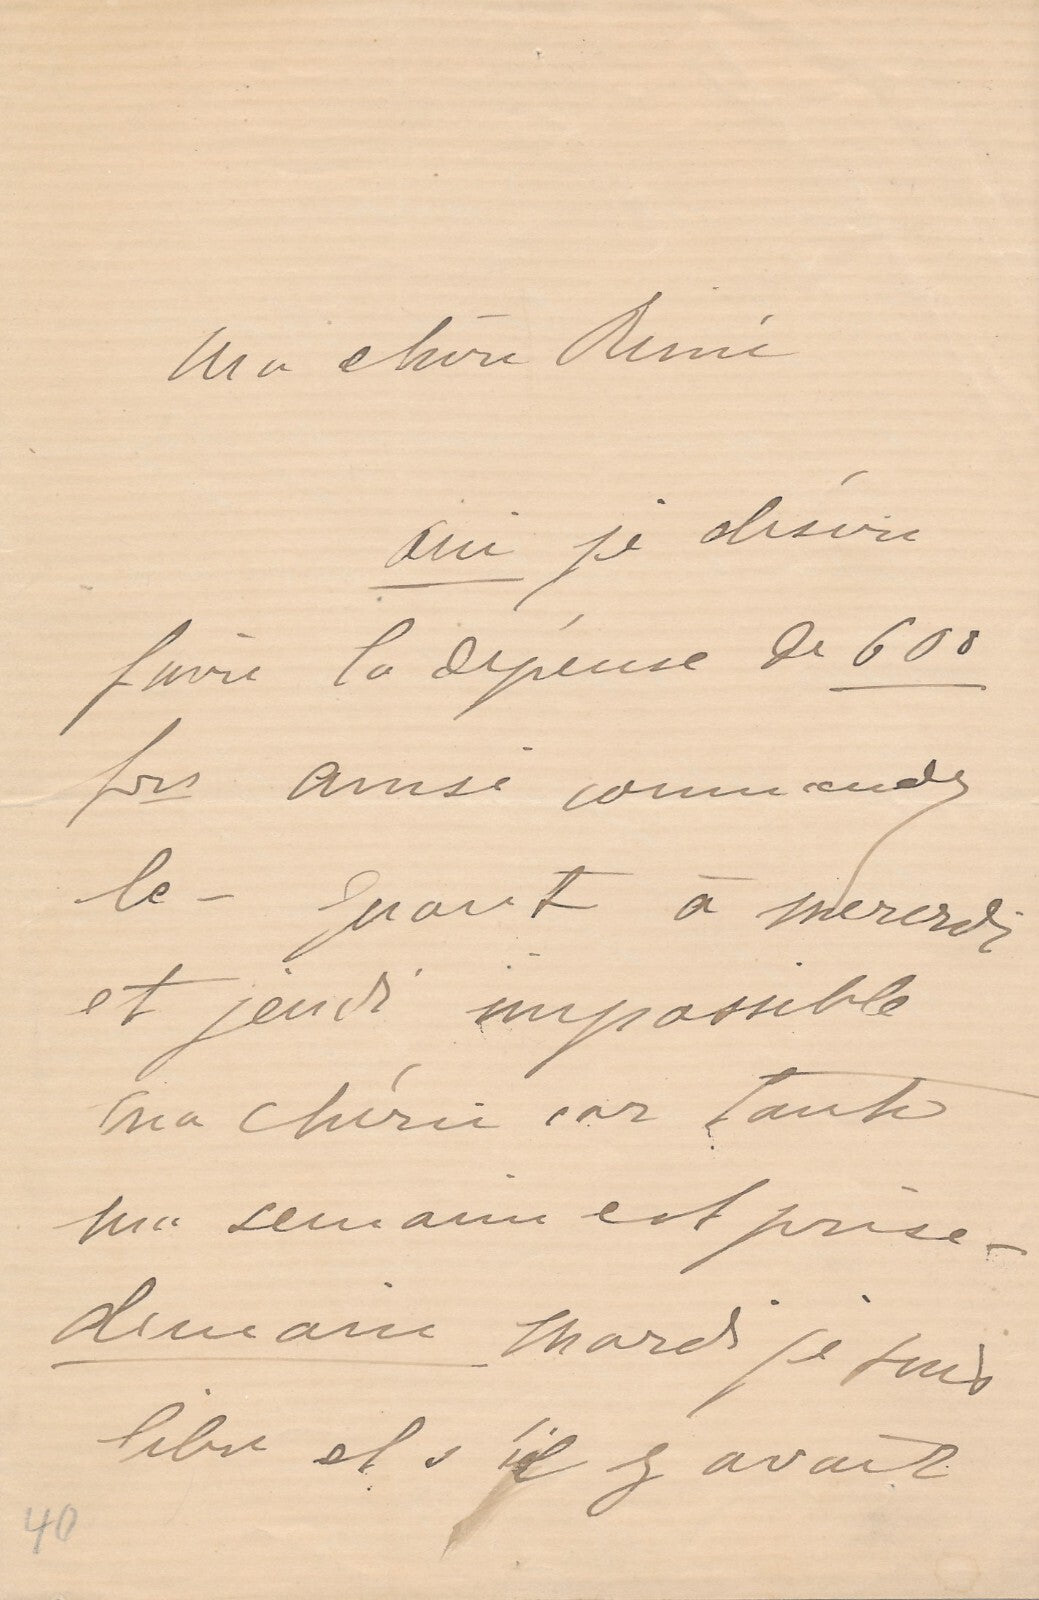 Ma chère
oui je désire
faire la dépense de 600
frs ainsi commandez
le - Quant à mercredi
et jeudi impossible
ma chérie car toute
ma semaine est prise -
demain mardi je suis
libre et s'il y avait
40